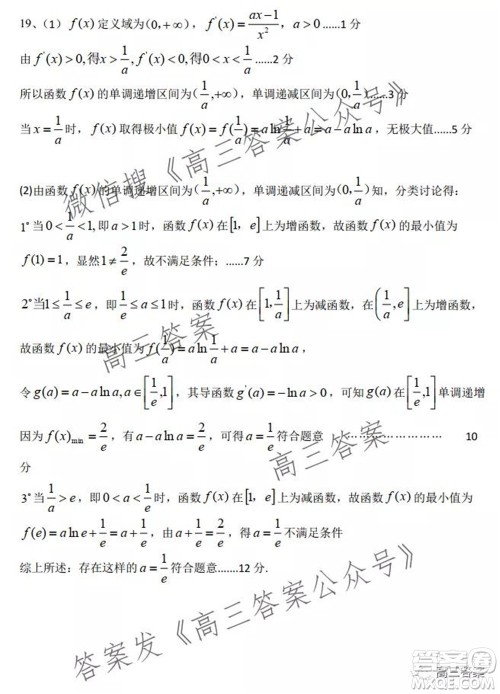 19、(1) f(x) 定义域为(0,+∞), f'(x)=\frac{ax-1}{x^2}, a>0 ......1 分
由 f'(x)>0,得x>\frac{1}{a}, f'(x)<0,得0<x<\frac{1}{a} ......2 分
所以函数 f(x) 的单调递增区间为(\frac{1}{a},+∞), 单调递减区间为(0,\frac{1}{a})......3 分
当 x=\frac{1}{a} 时, f(x) 取得极小值 f(x)=f(\frac{1}{a})=a\ln\frac{1}{a}+a=a-a\ln a, 无极大值......5 分
(2)由函数 f(x) 的单调递增区间为(\frac{1}{a},+∞), 单调递减区间为(0,\frac{1}{a})知, 分类讨论得:
1° 当 0<\frac{1}{a}<1, 即 a>1 时, 函数 f(x) 在 [1, e] 上为增函数, 故函数 f(x) 的最小值为
f(1)=1, 显然 1≠\frac{2}{e}, 故不满足条件; ......7 分
2° 当 1≤\frac{1}{a}≤e, 即 \frac{1}{e}≤a≤1 时, 函数 f(x) 在 [1,\frac{1}{a}] 上为减函数, 在 (\frac{1}{a},e] 上为增函数,
故函数 f(x) 的最小值为 f(\frac{1}{a})=a\ln\frac{1}{a}+a=a-a\ln a,
令 g(a)=a-a\ln a, a∈[\frac{1}{e},1], 其导函数 g'(a)=-\ln a>0, 可知 g(a) 在 [\frac{1}{e},1] 单调递增
因为 f(x)_{min}=\frac{2}{e}, 有 a-a\ln a=\frac{2}{e}, 可得 a=\frac{1}{e} 符合题意 ........................ 10
分
3° 当 \frac{1}{a}>e, 即 0<a<\frac{1}{e} 时, 函数 f(x) 在 [1, e] 上为减函数, 故函数 f(x) 的最小值为
f(e)=a\ln e+\frac{1}{e}=a+\frac{1}{e}, 由 a+\frac{1}{e}=\frac{2}{e}, 得 a=\frac{1}{e} 不满足条件
综上所述: 存在这样的 a=\frac{1}{e} 符合题意.......12 分.
微信搜《高三答案公众号》
高三答案
高三答案
答案发《高三答案公众号》
高三答案
答案圈
MXQE.COM